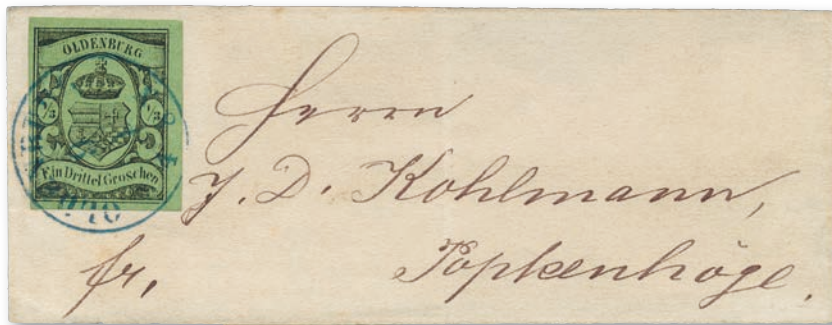 OLDENBURG
1/3 1/3
Ein Drittel Groschen
Herrn
J. D. Kohlmann,
fr, Popkenhöge.